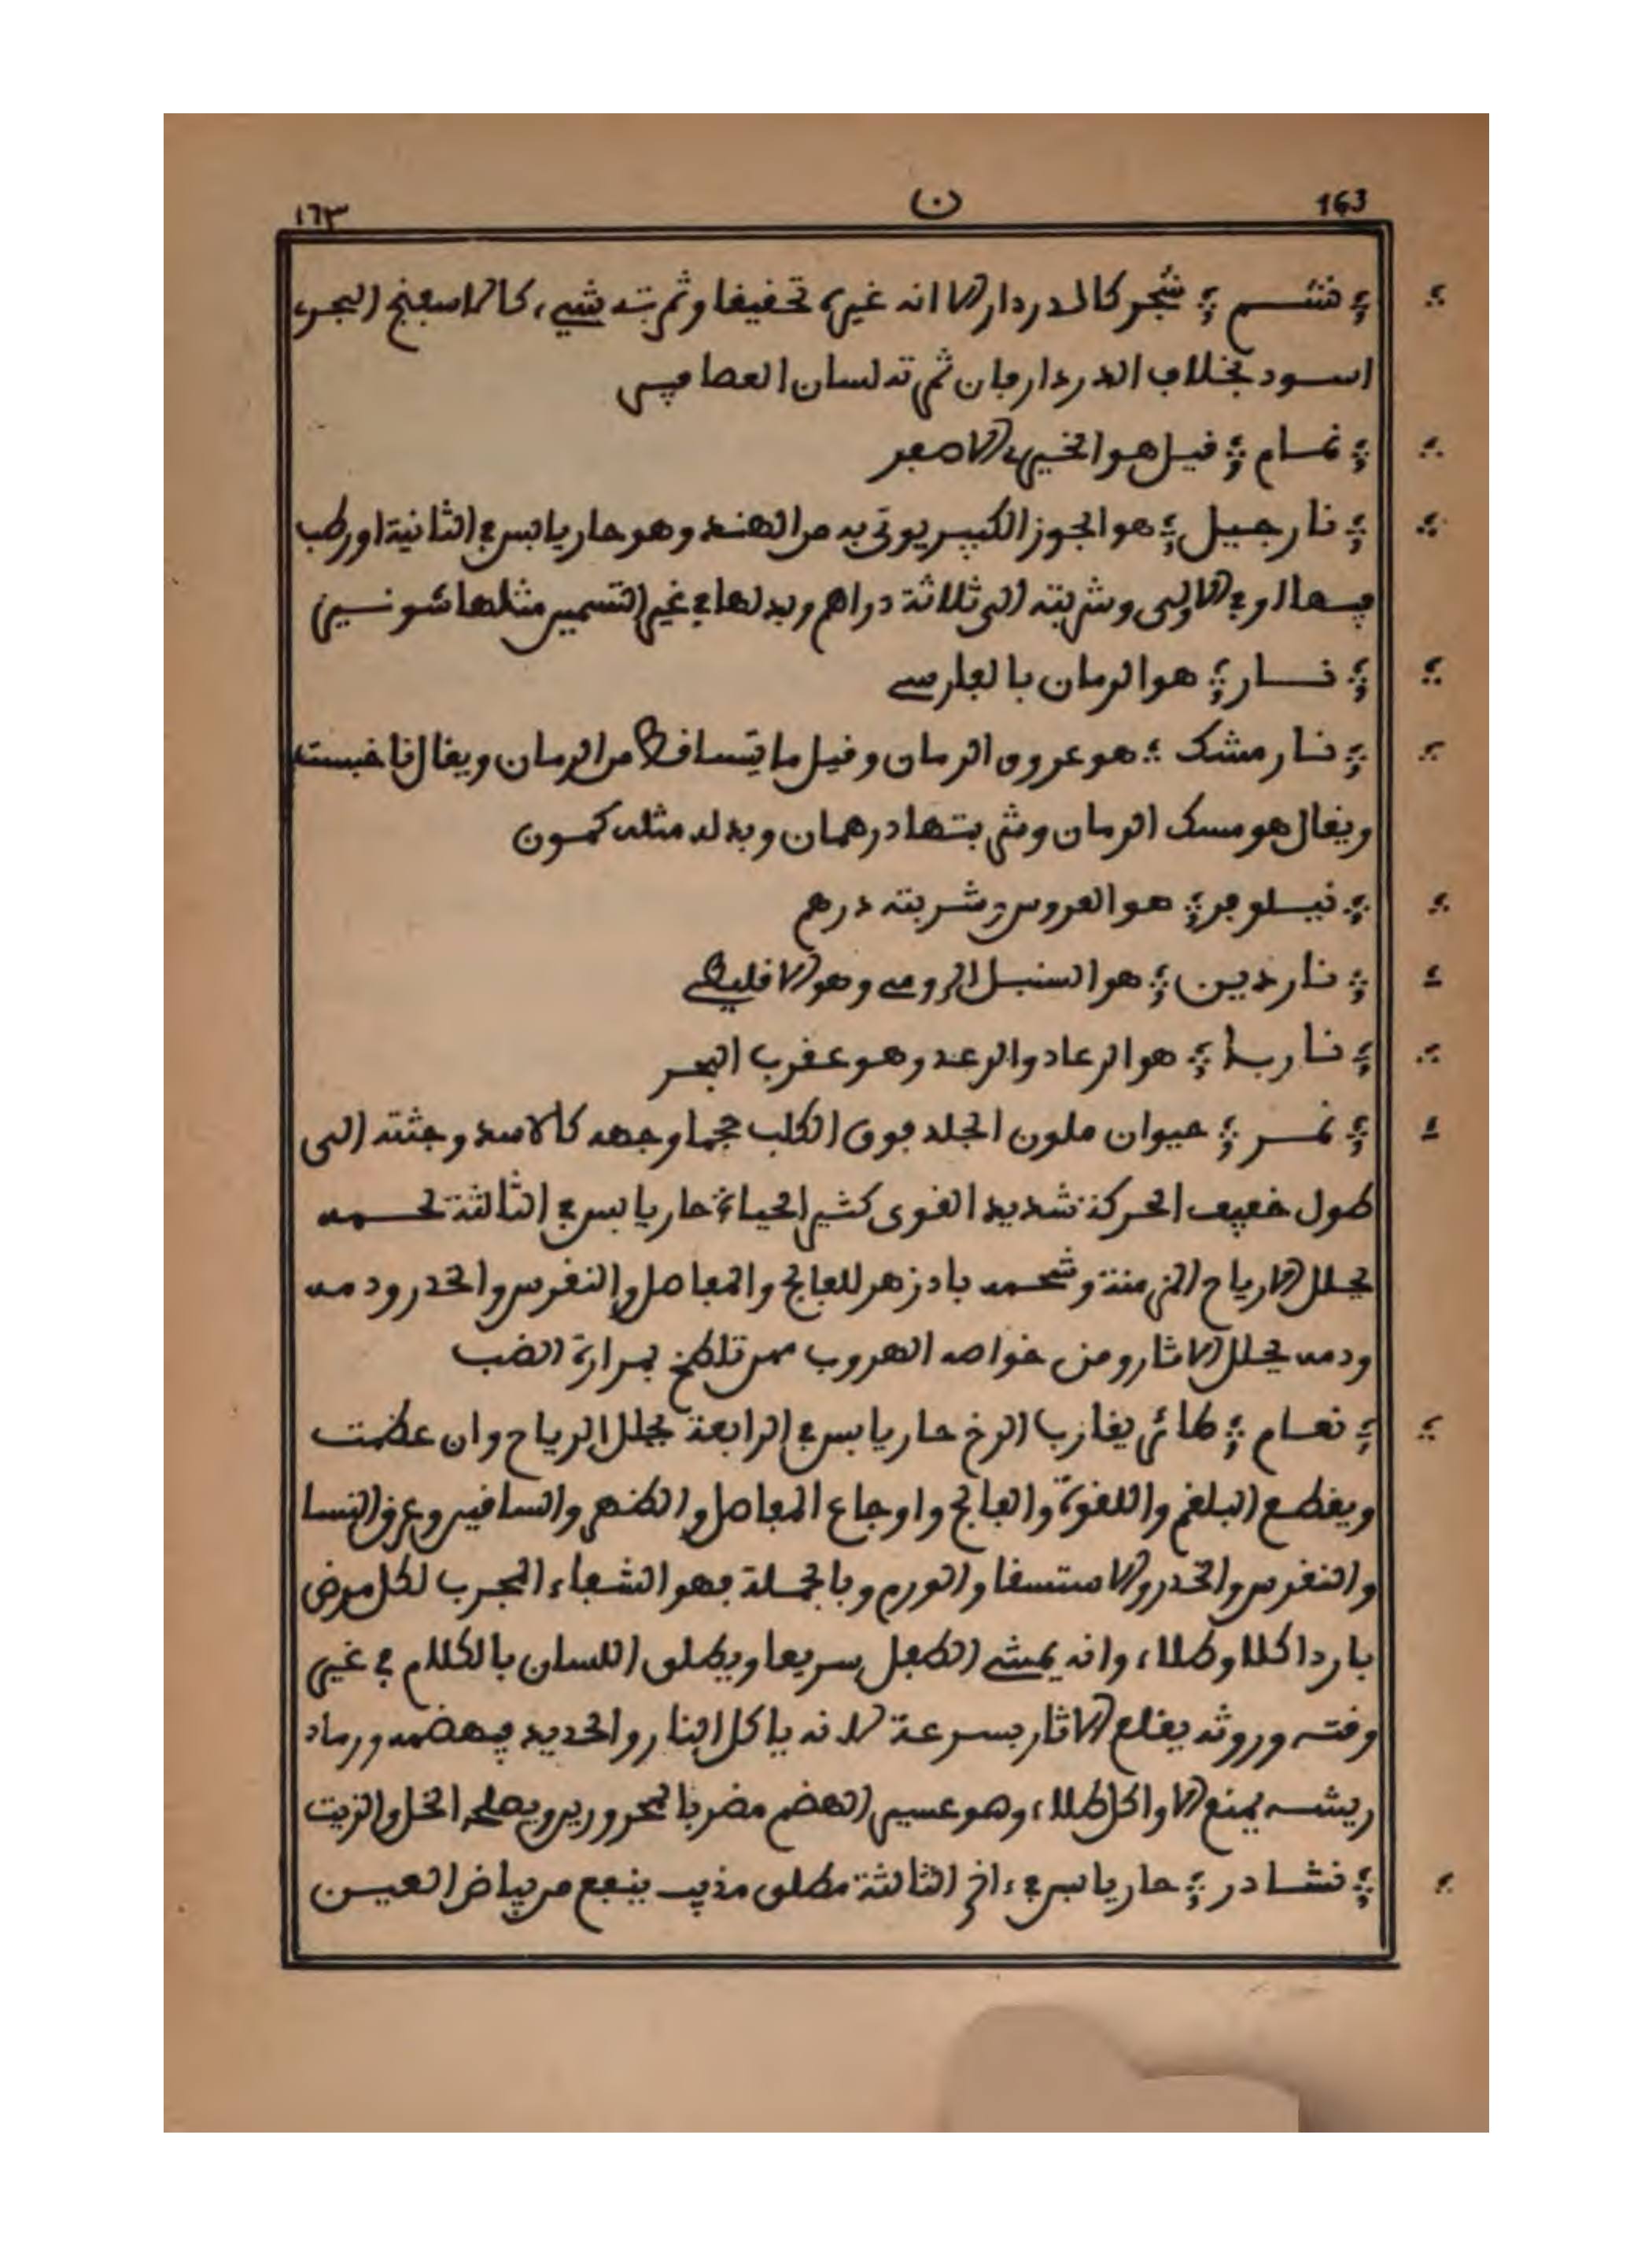 163 ن ١٦٣
نشم شجر كالدردار الا انه غيره تحفيفا وثمرته شيء كالاسفنج البحر
اسود بخلاف الدردار فان ثمرته لسان العصافير
نمام قيل هو الخيري الاصفر
نارجيل هو الجوز الكبير يوتى به من الهند وهو حار يابس في الثانية او رطب
فيها او في الاولى وشربته الى ثلاثة دراهم وبدلها في غير التسمين مثلها شونيز
نار هو الرمان بالفارسي
نارمشك هو عروق الرمان وقيل ما يتساقط من الرمان ويقال
ويقال هو مسك الرمان وشربتها درهمان وبدله مثله كمون
نيلوفر هو العروس وشربته درهم
ناردين هو السنبل الرومي وهو الاقليطي
هو الرعاد والرعد وهو عقرب البحر
نمر حيوان ملون الجلد فوق الكلب حجما وجهه كالاسد وجثته الى
طول خفيف الحركة شديد القوى كثير الحياء حار يابس في الثالثة لحمه
يحلل الارياح المزمنة وشحمه بادزهر للفالج والمفاصل والنقرس والخدر ودمه
ودمه يحلل الاثار ومن خواصه الهروب ممن تلطخ بمرارة الضب
نعام طائر يقارب الرخ حار يابس في الرابعة يحلل الرياح وان عظمت
ويقطع البلغم واللقوة والفالج واوجاع المفاصل والظهر والساقين وعرق النسا
والنقرس والخدر والاستسقا والورم وبالجملة فهو الشفاء المجرب لكل مرض
باردا كلا وطلاء وانه يمشي الطفل سريعا ويطلق اللسان بالكلام في غير
وقته وروثه يقلع الاثار بسرعة لانه ياكل النار والحديد فيهضمه ورماد
ريشه يمنع الاواكل طلاء وهو عسير الهضم مضر بالمحرورين ويصلحه الخل والزيت
نشادر حار يابس في ءاخر الثالثة مطلق مذيب ينفع من بياض العين